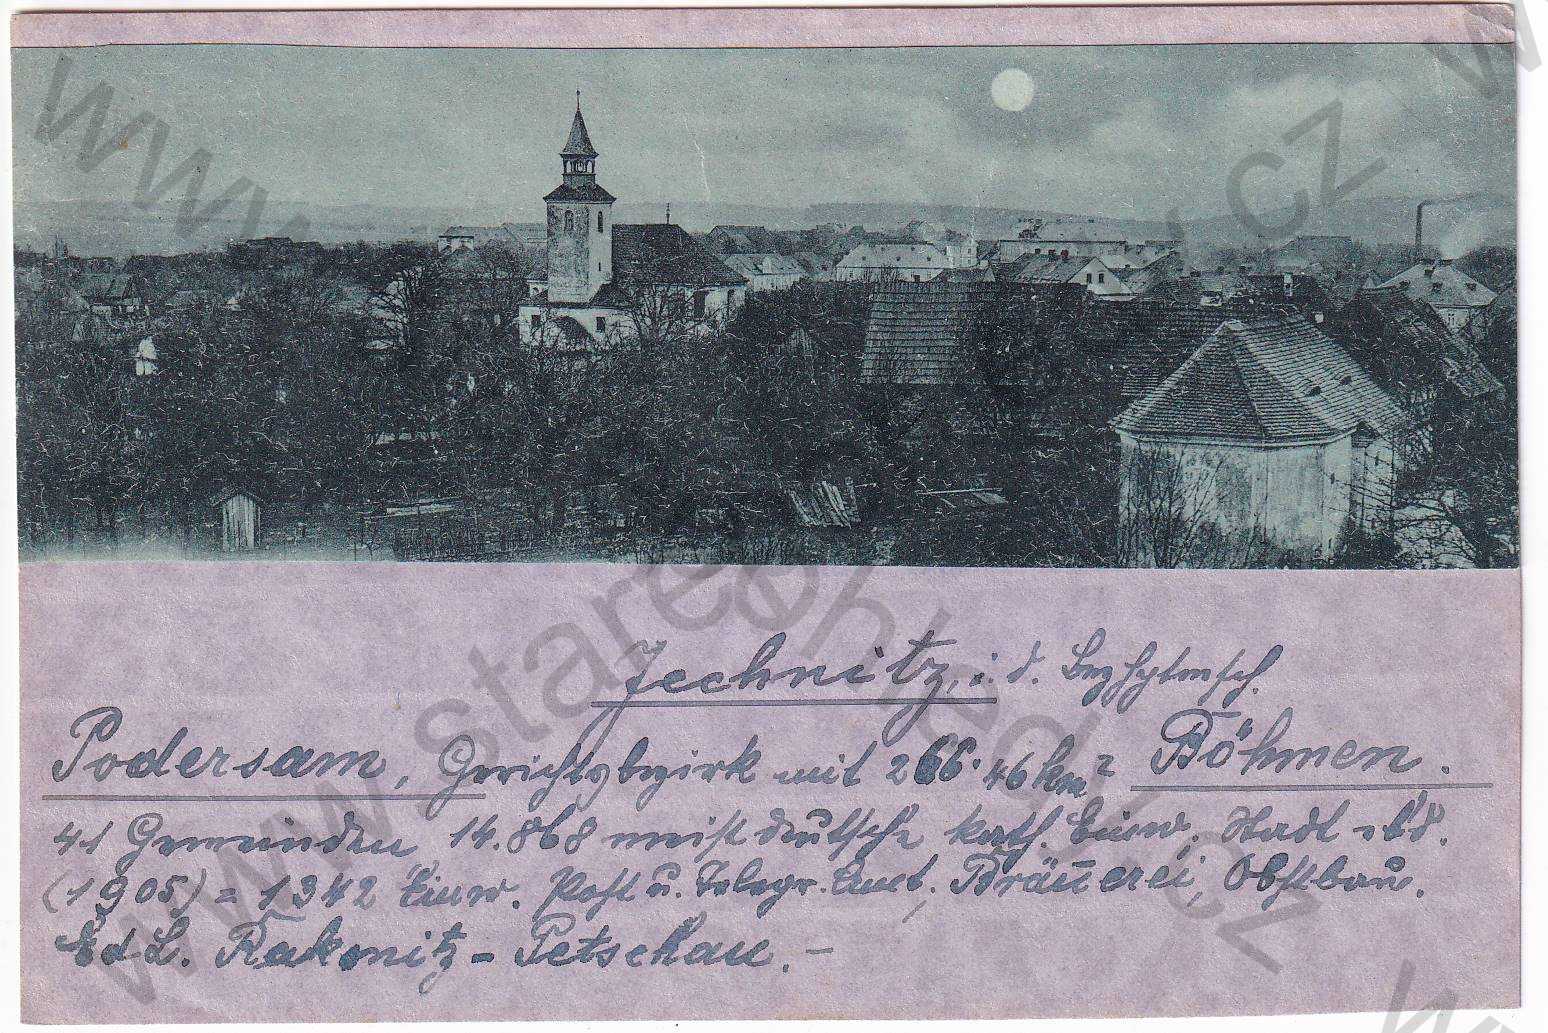 Jechnitz, i. d. Bezhptmsch.
Podersam, Gerichtsbezirk mit 266.46 km² Böhmen.
41 Gemeinden 14.868 meist deutsche kath. Einw. Stadt
(1905) = 1342 Einw. Post u. Telegr. Amt, Bräuerei, Obstbau.
Rakonitz - Petschau. –
www.stare-pohledy.cz